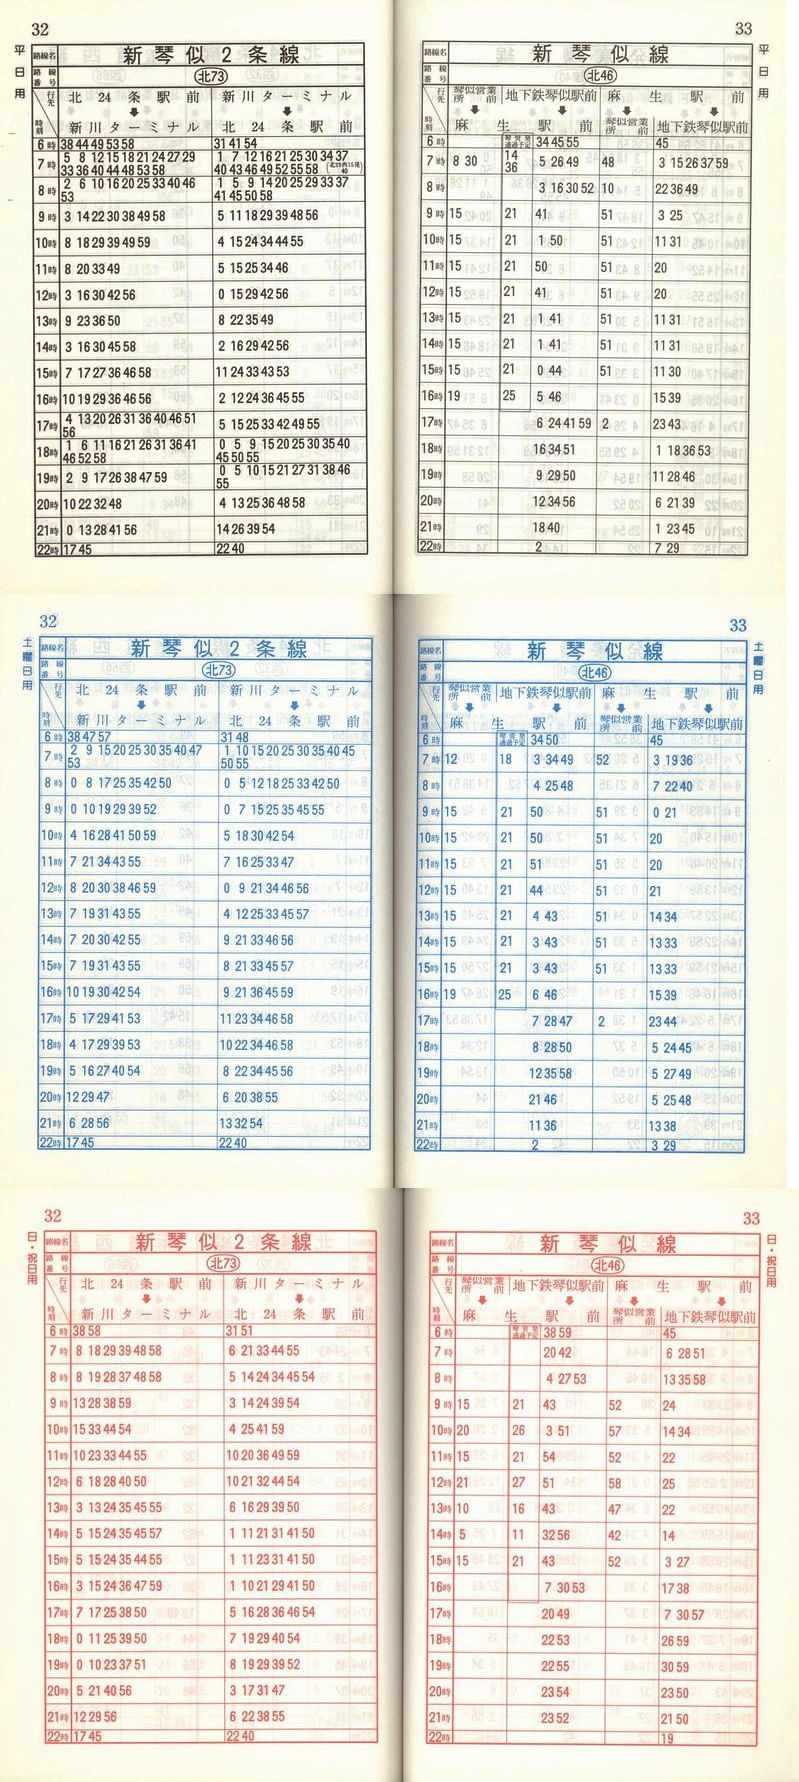 32
平日用
路線名 新琴似2条線
路線番号 北73
行先 北24条駅前 新川ターミナル
時刻 新川ターミナル 北24条駅前
6時 38 44 49 53 58 31 41 54
7時 5 8 12 15 18 21 24 27 29 1 7 12 16 21 25 30 34 37
33 36 40 44 48 53 58 40 43 46 49 52 55 58
8時 2 6 10 16 20 25 33 40 46 1 5 9 14 20 25 29 33 37
53 41 45 50 58
9時 3 14 22 30 38 49 58 5 11 18 29 39 48 56
10時 8 18 29 39 49 59 4 15 24 34 44 55
11時 8 20 33 49 5 15 25 34 46
12時 3 16 30 42 56 0 15 29 42 56
13時 9 23 36 50 8 22 35 49
14時 3 16 30 45 58 2 16 29 42 56
15時 7 17 27 36 46 58 11 24 33 43 53
16時 10 19 29 36 46 56 2 12 24 36 45 55
17時 4 13 20 26 31 36 40 46 51 5 15 25 33 42 49 55
56
18時 1 6 11 16 21 26 31 36 41 0 5 9 15 20 25 30 35 40
46 52 58 45 50 55
19時 2 9 17 26 38 47 59 0 5 10 15 21 27 31 38 46
55
20時 10 22 32 48 4 13 25 36 48 58
21時 0 13 28 41 56 14 26 39 54
22時 17 45 22 40
33
平日用
路線名 新琴似線
路線番号 北46
行先 琴似営業所 地下鉄琴似駅前 麻生駅前
時刻 麻生駅前 琴似営業所 地下鉄琴似駅前
6時 34 45 55 45
7時 8 30 14 36 5 26 49 48 3 15 26 37 59
8時 3 16 30 52 10 22 36 49
9時 15 21 41 51 3 25
10時 15 21 1 50 51 11 31
11時 15 21 50 51 20
12時 15 21 41 51 20
13時 15 21 1 41 51 11 31
14時 15 21 1 41 51 11 31
15時 15 21 0 44 51 11 30
16時 19 25 5 46 15 39
17時 6 24 41 59 2 23 43
18時 16 34 51 1 18 36 53
19時 9 29 50 11 28 46
20時 12 34 56 6 21 39
21時 18 40 1 23 45
22時 2 7 29
32
土曜日用
路線名 新琴似2条線
路線番号 北73
行先 北24条駅前 新川ターミナル
時刻 新川ターミナル 北24条駅前
6時 38 47 57 31 48
7時 2 9 15 20 25 30 35 40 47 1 10 15 20 25 30 35 40 45
53 50 55
8時 0 8 17 25 35 42 50 0 5 12 18 25 33 42 50
9時 0 10 19 29 39 52 0 7 15 25 35 45 55
10時 4 16 28 41 50 59 5 18 30 42 54
11時 7 21 34 43 55 7 16 25 33 47
12時 8 20 30 38 46 59 0 9 21 34 46 56
13時 7 19 31 43 55 4 12 25 33 45 57
14時 7 20 30 42 55 9 21 33 46 56
15時 7 19 31 43 55 8 21 33 45 57
16時 10 19 30 42 54 9 21 36 45 59
17時 5 17 29 41 53 11 23 34 46 58
18時 4 17 29 39 53 10 22 34 46 58
19時 5 16 27 40 54 8 22 34 45 56
20時 12 29 47 6 20 38 55
21時 6 28 56 13 32 54
22時 17 45 22 40
33
土曜日用
路線名 新琴似線
路線番号 北46
行先 琴似営業所 地下鉄琴似駅前 麻生駅前
時刻 麻生駅前 琴似営業所 地下鉄琴似駅前
6時 34 50 45
7時 12 18 3 34 49 52 3 19 36
8時 4 25 48 7 22 40
9時 15 21 50 51 0 21
10時 15 21 50 51 20
11時 15 21 51 51 20
12時 15 21 44 51 21
13時 15 21 4 43 51 14 34
14時 15 21 3 43 51 13 33
15時 15 21 3 43 51 13 33
16時 19 25 6 46 15 39
17時 7 28 47 2 23 44
18時 8 28 50 5 24 45
19時 12 35 58 5 27 49
20時 21 46 5 25 48
21時 11 36 13 38
22時 2 3 29
32
日・祝日用
路線名 新琴似2条線
路線番号 北73
行先 北24条駅前 新川ターミナル
時刻 新川ターミナル 北24条駅前
6時 38 58 31 51
7時 8 18 29 39 48 58 6 21 33 44 55
8時 8 19 28 37 48 58 5 14 24 34 45 54
9時 13 28 38 59 3 14 24 39 54
10時 15 33 44 54 4 25 41 59
11時 10 23 33 44 55 10 20 36 49 59
12時 6 18 28 40 50 10 21 32 44 54
13時 3 13 24 35 45 55 6 16 29 39 50
14時 5 15 24 35 45 57 1 11 21 31 41 50
15時 5 15 24 35 44 55 1 11 23 31 41 50
16時 3 15 24 36 47 59 1 10 21 29 41 50
17時 7 17 25 38 50 5 16 28 36 46 54
18時 0 11 25 39 50 7 19 29 40 54
19時 0 10 23 37 51 8 19 29 39 52
20時 5 21 40 56 3 17 31 47
21時 12 29 56 6 22 38 55
22時 17 45 22 40
33
日・祝日用
路線名 新琴似線
路線番号 北46
行先 琴似営業所 地下鉄琴似駅前 麻生駅前
時刻 麻生駅前 琴似営業所 地下鉄琴似駅前
6時 38 59 45
7時 20 42 6 28 51
8時 4 27 53 13 35 58
9時 15 21 43 52 24
10時 20 26 3 51 57 14 34
11時 15 21 54 52 22
12時 21 27 51 58 25
13時 10 16 43 47 22
14時 5 11 32 56 42 14
15時 15 21 43 52 3 27
16時 7 30 53 17 38
17時 20 49 7 30 57
18時 22 53 26 59
19時 22 55 30 59
20時 23 54 23 50
21時 23 52 21 50
22時 19